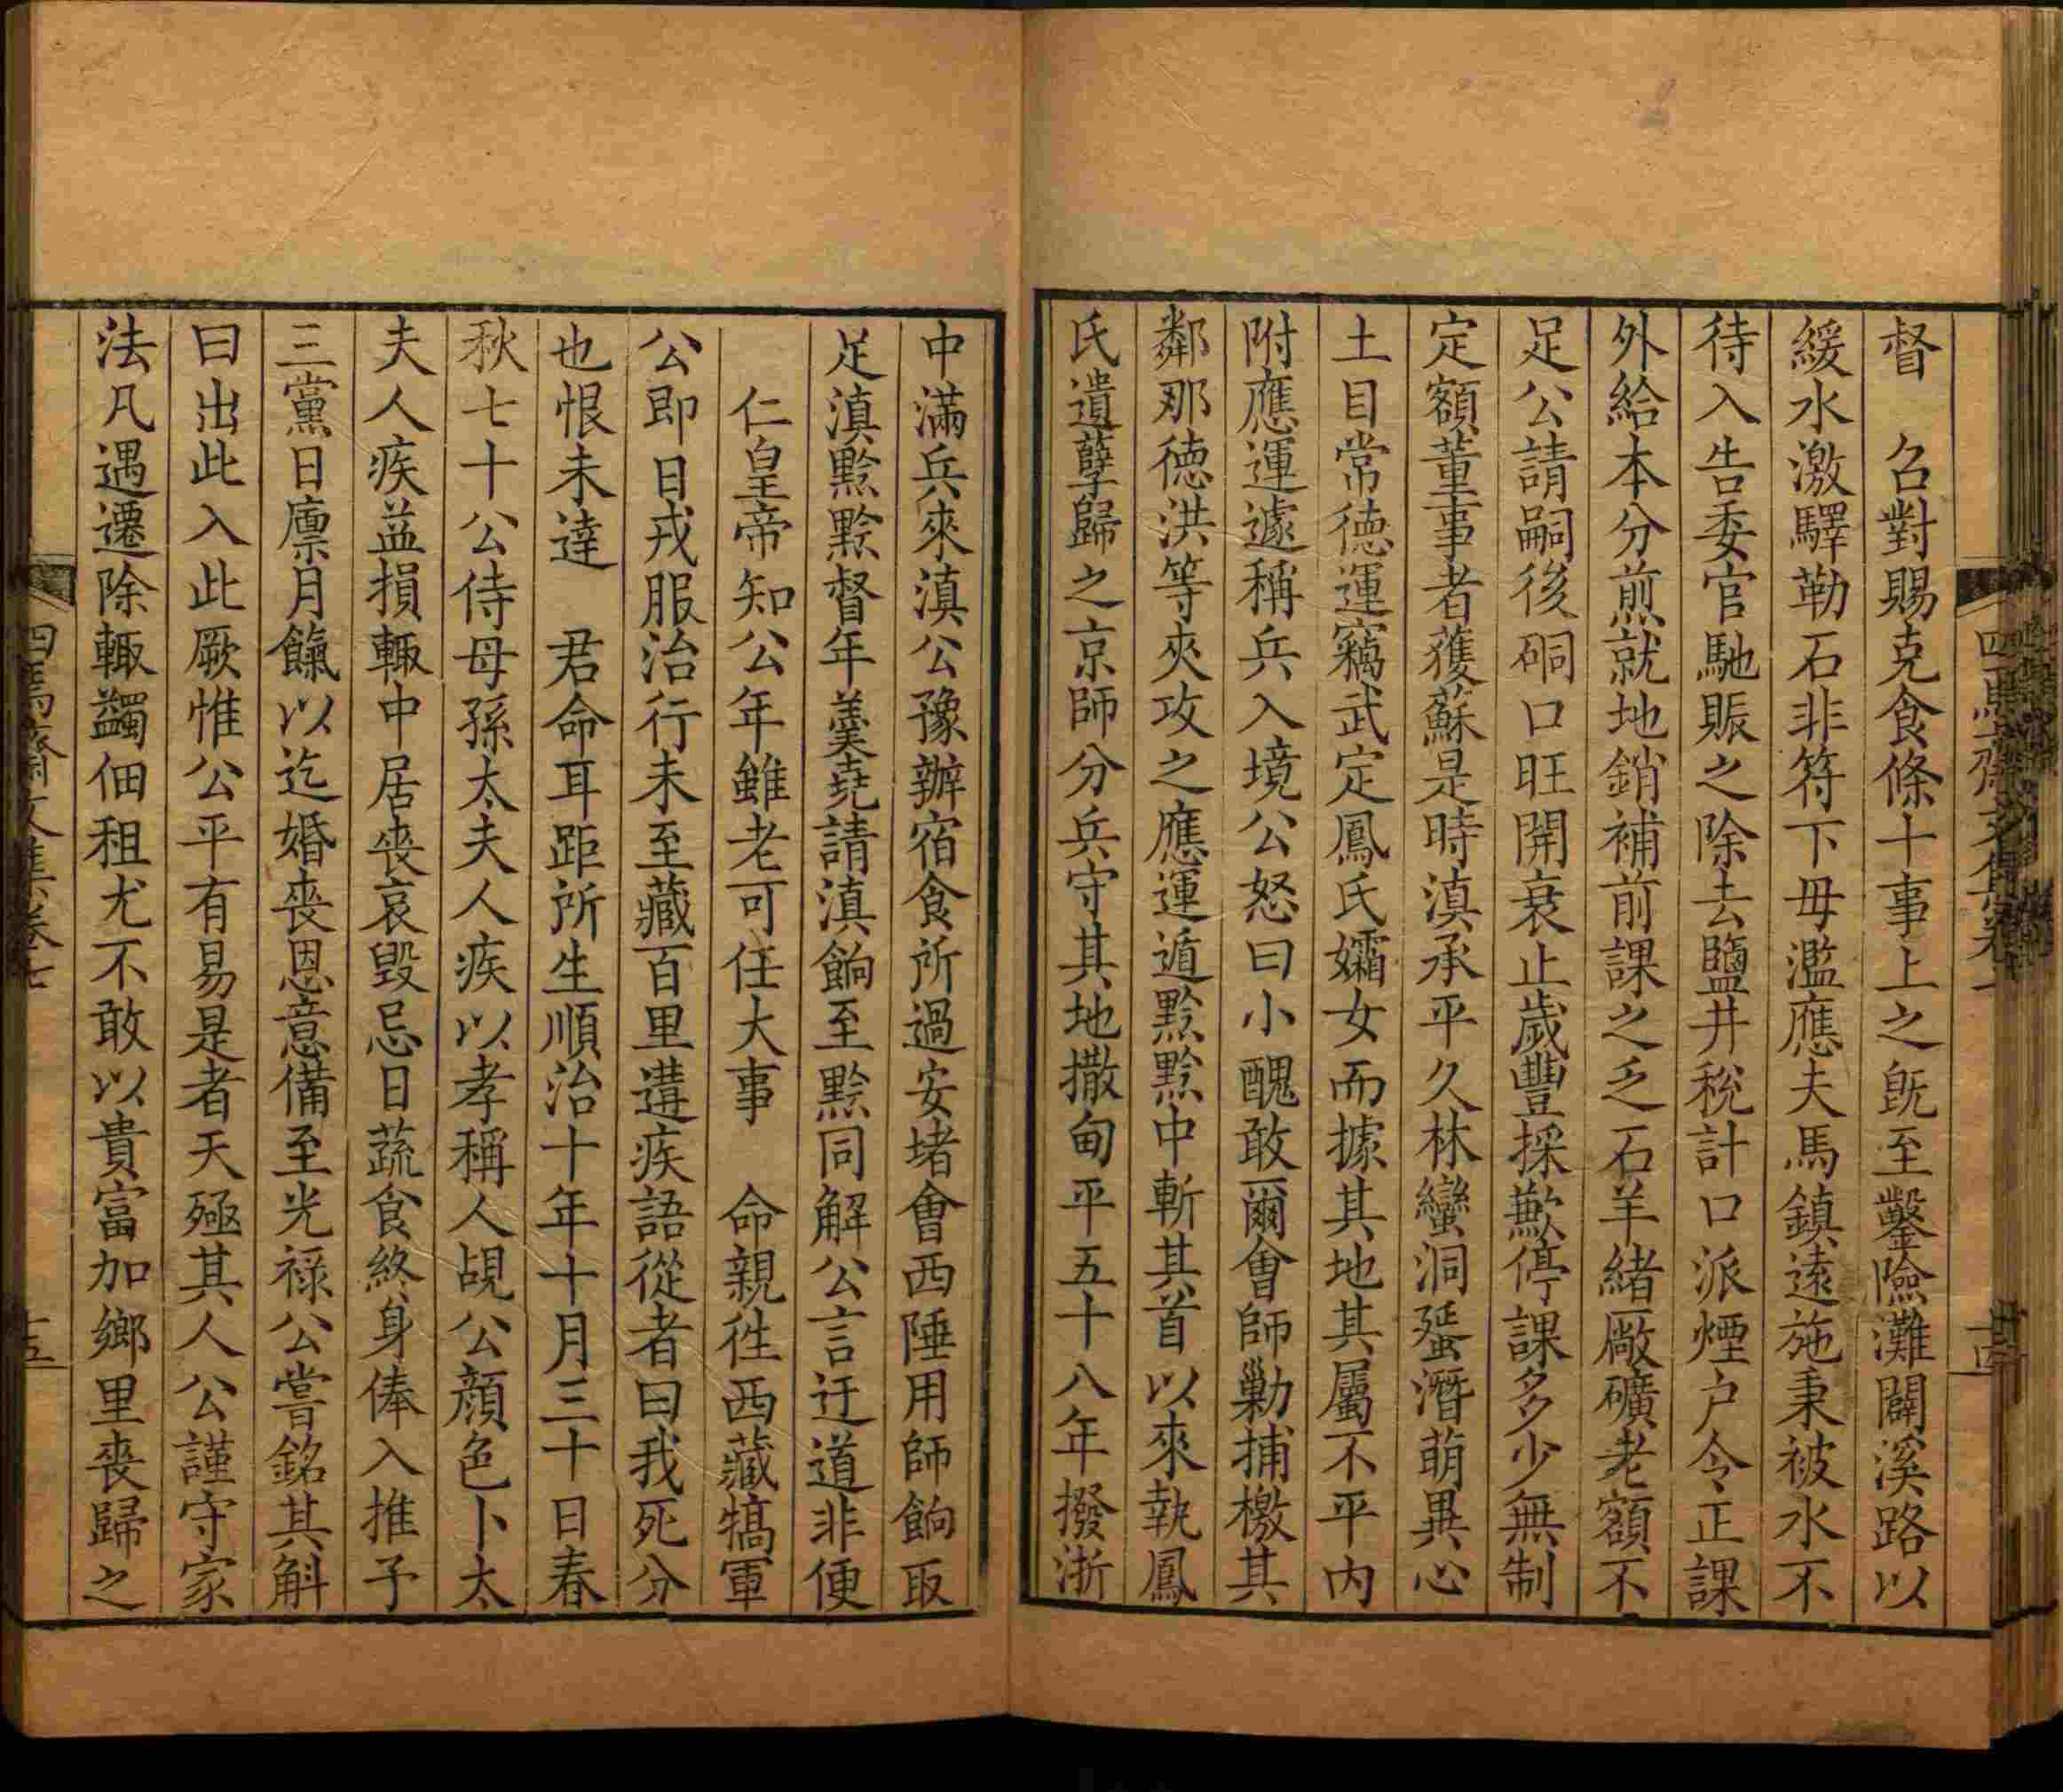 督　召對賜克食條十事上之旣至鑿險灘闢溪路以
緩水激驛勒石非符下毋濫應夫馬鎮遠施秉被水不
待入告委官馳賑之除去鹽井稅計口派煙户令正課
外給本分煎就地銷補前課之乏石羊緒厰礦老額不
足公請嗣後硐口旺開衰止歲豐採歉停課多少無制
定額董事者獲蘇是時滇承平久林蠻洞蜑潛萌異心
土目常德運竊武定鳳氏孀女而據其地其屬不平内
附應運遽稱兵入境公怒曰小醜敢爾會師勦捕檄其
鄰那德洪等夾攻之應運遁黔黔中斬其首以來執鳳
氏遺孽歸之京師分兵守其地撒甸平五十八年撥浙
中滿兵來滇公豫辦宿食所過安堵會西陲用師餉取
足滇黔黔督年羹堯請滇餉至黔同解公言迂道非便
仁皇帝知公年雖老可任大事　命親徃西藏犒軍
公即日戎服治行未至藏百里遘疾語從者曰我死分
也恨未達　君命耳距所生順治十年十月三十日春
秋七十公侍母孫太夫人疾以孝稱人覘公顔色卜太
夫人疾益損輙中居丧哀毁忌日蔬食終身俸入推予
三黨日廪月餼以迄婚丧恩意備至光禄公嘗銘其斛
曰出此入此厥惟公平有易是者天殛其人公謹守家
法凡遇遷除輙蠲佃租尤不敢以貴富加鄉里丧歸之
四焉齋文集卷七
十五